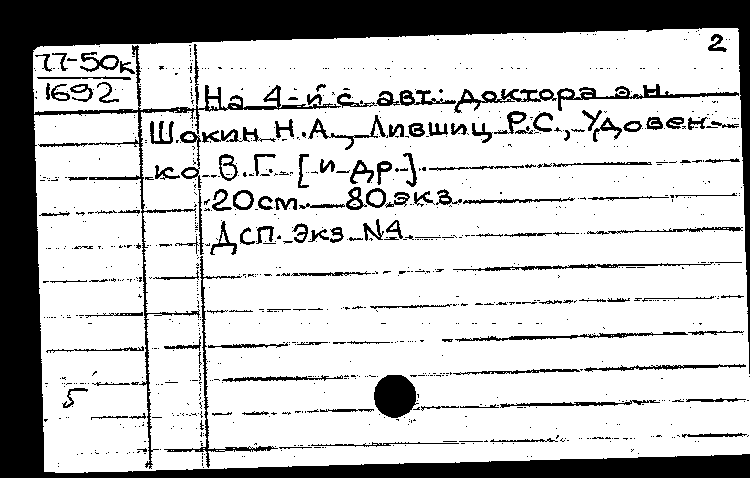 2
77-50к
1692
На 4-й с. авт.: доктора э.н.
Шокин Н.А., Лившиц Р.С., Удовен-
ко В.Г. [и др.].
20 см. 80 экз.
Дсп. Экз. N4.
5